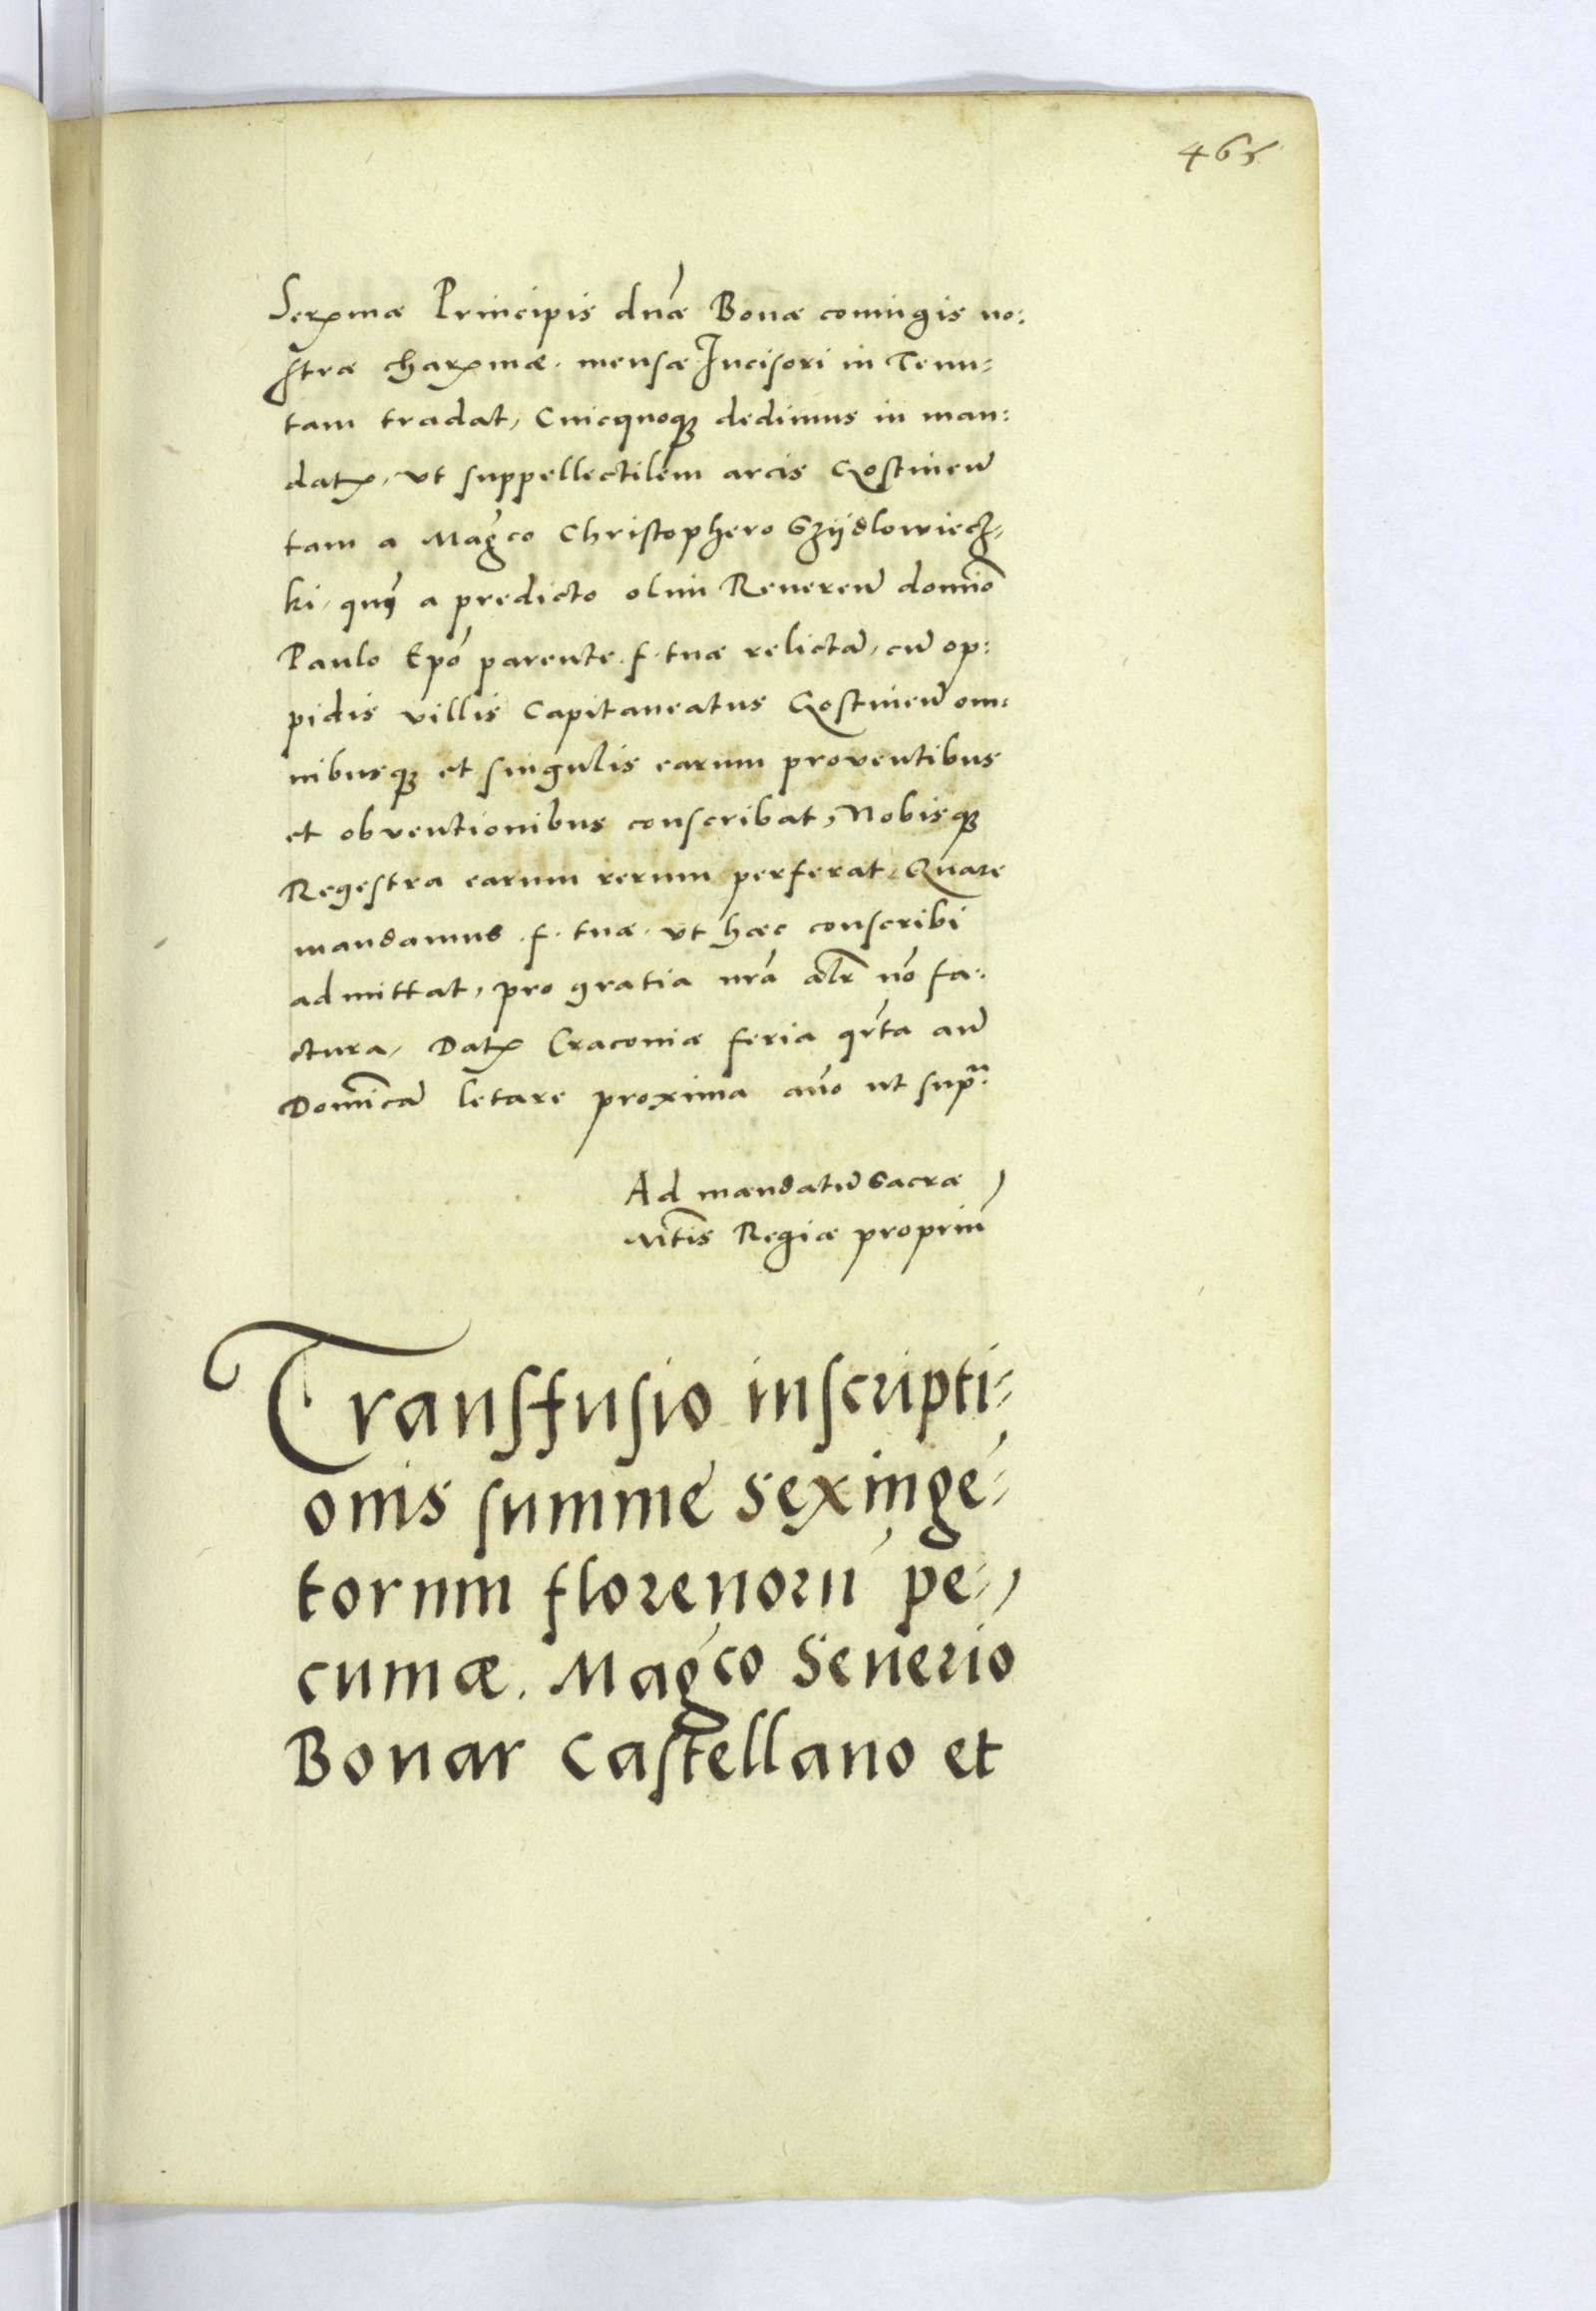 465
Serꝫmæ Principis dnæ Bonæ coniugis no:
stræ charꝫmæ. mensæ Incisori in Tenu=
tam tradat, Cuicquoqꝫ dedimus in man:
datꝫ, vt suppellectilem arcis Gostineñ
tam a Magco Christophero Szÿdlowiecz=
ki, qꝫ a predicto olim Reuereñ domio
Paulo Epo parente f. tuæ relictã, cũ op:
pidis villis Capitaneatus Gostineñ om=
nibusqꝫ et singulis earum proventibus
et obventionibus conscribat, Nobisqꝫ
Regestra earum rerum perferat, Quare
mandamus .f. tuæ. vt hæc conscribi
admittat, pro gratia nrã alr nõ fa:
ctura, Datꝫ Cracoviæ feria qrta añ
Domicã letare proxima año ut supra
Ad mandatũ Sacræ
Mtis Regiæ propriũ
Transfusio inscripti=
onis summe sexinge=
torum florenorũ pe=
cuniæ. Magco Seuerio
Bonar Castellano et